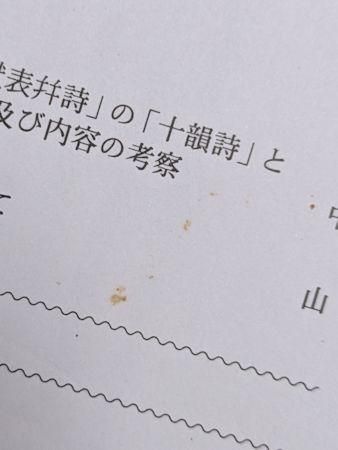 表幷詩」の「十韻詩」と
及び内容の考察
山